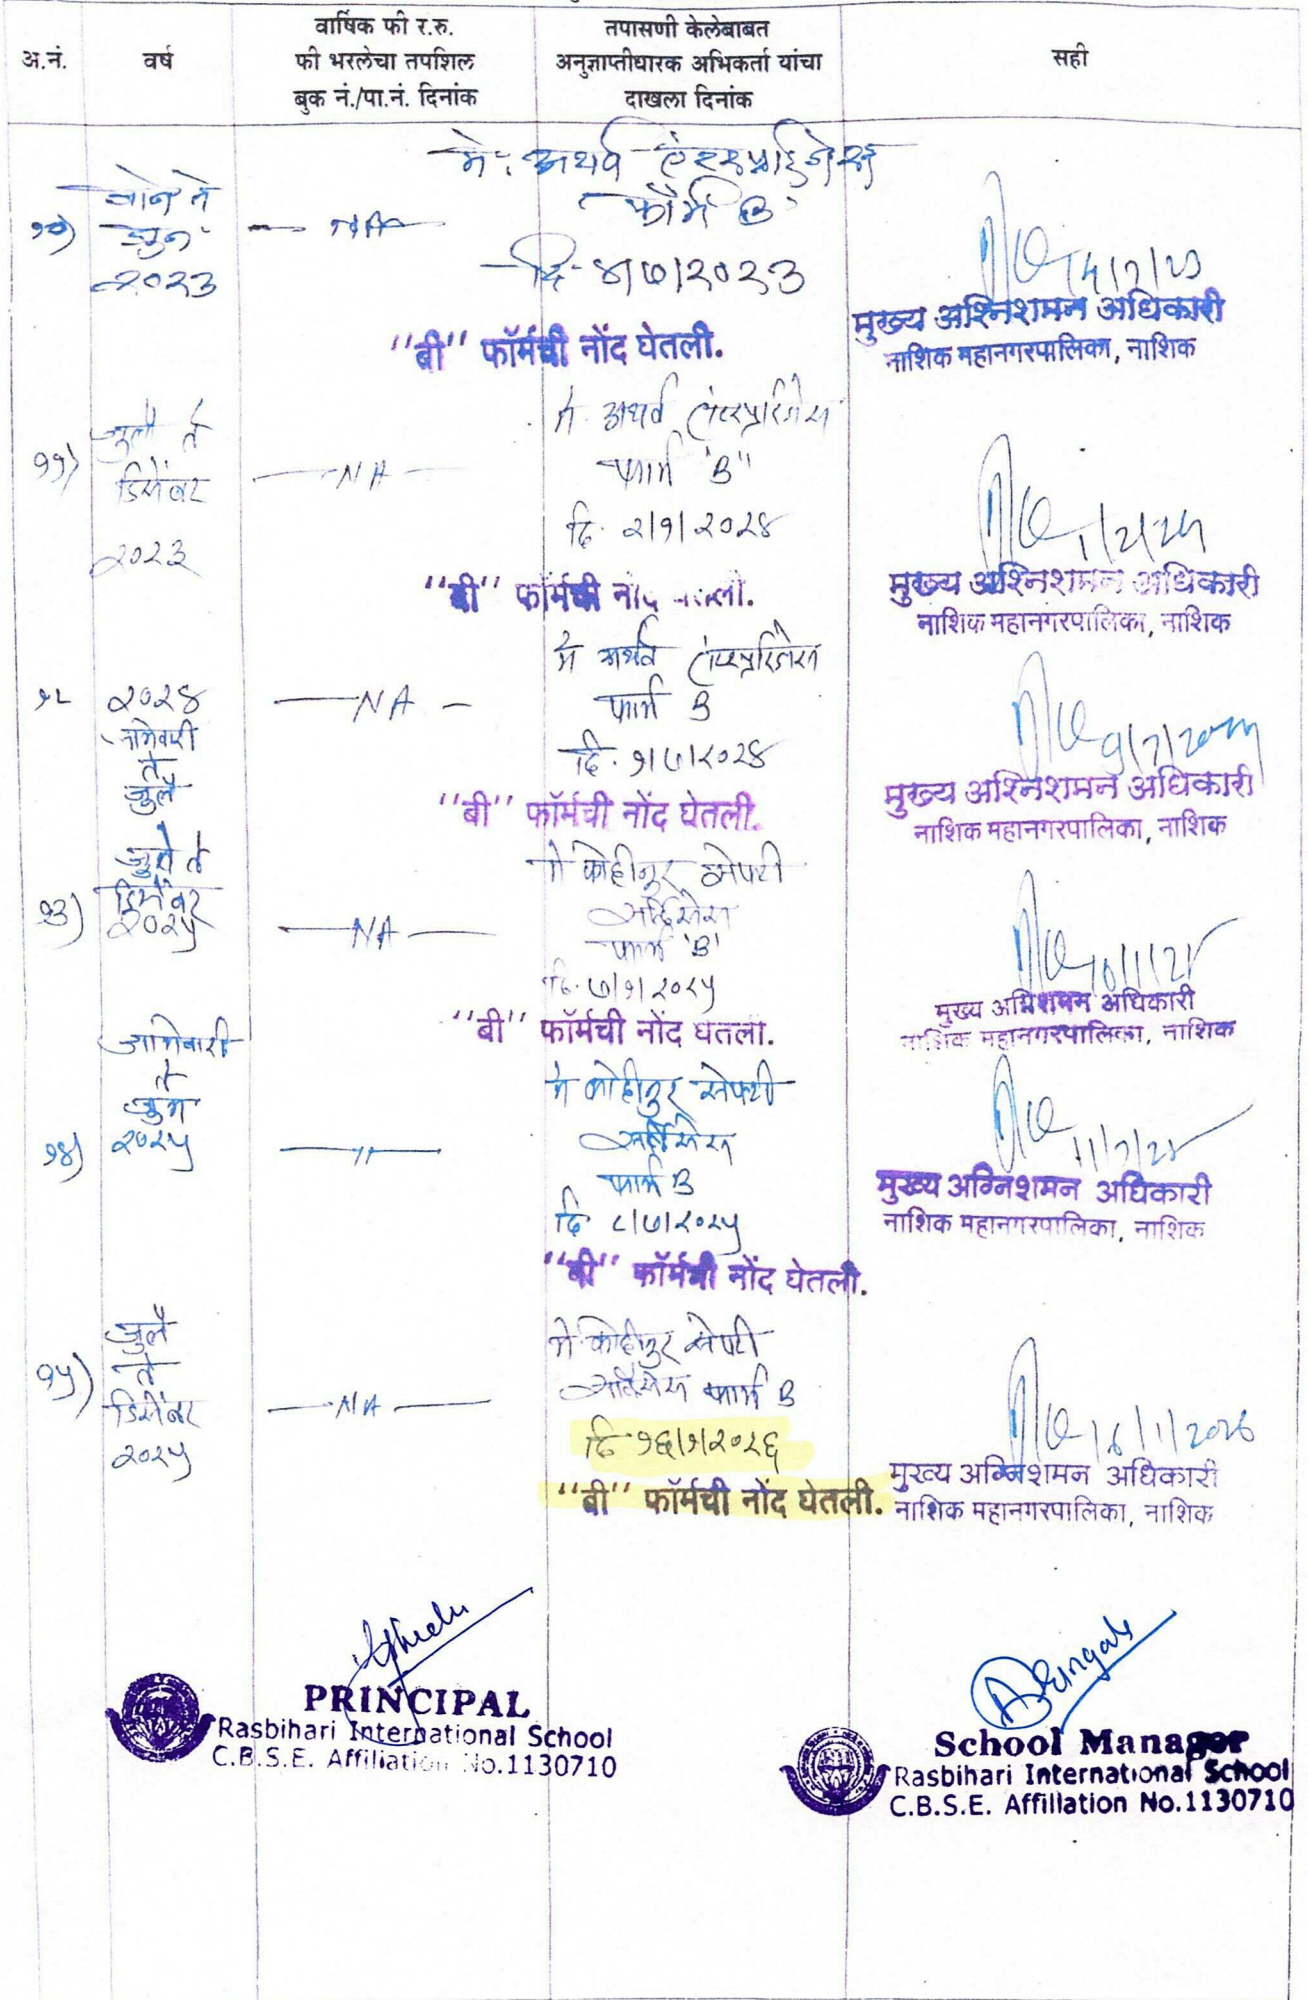 अ.नं.
वर्ष
वार्षिक फी र.रु.
फी भरलेचा तपशिल
बुक नं./पा.नं. दिनांक
तपासणी केलेबाबत
अनुज्ञाप्तीधारक अभिकर्ता यांचा
दाखला दिनांक
सही
१०)
जाने ते
जुन
२०२३
NA
मे. अथर्व एंटरप्राईजेस
फॉर्म B
दि. ४/७/२०२३
"बी" फॉर्मची नोंद घेतली.
मुख्य अग्निशमन अधिकारी
नाशिक महानगरपालिका, नाशिक
११)
जुलै ते
डिसेंबर
२०२३
NA
मे. अथर्व एंटरप्राईजेस
फार्म 'B'
दि. २/१/२०२४
"बी" फॉर्मची नोंद घेतली.
मुख्य अग्निशमन अधिकारी
नाशिक महानगरपालिका, नाशिक
१२
२०२४
जानेवारी
ते
जुलै
NA
मे अथर्व एंटरप्राईजेस
फार्म B
दि. १/७/२०२४
"बी" फॉर्मची नोंद घेतली.
मुख्य अग्निशमन अधिकारी
नाशिक महानगरपालिका, नाशिक
१३)
जुलै ते
डिसेंबर
२०२५
NA
मे कोहीनुर सेफ्टी
सर्व्हिसेस
फार्म 'B'
दि. ७/१/२०२५
"बी" फॉर्मची नोंद घेतली.
मुख्य अग्निशमन अधिकारी
नाशिक महानगरपालिका, नाशिक
१४)
जानेवारी
ते
जुन
२०२५
—॥—
मे कोहीनुर सेफ्टी
सर्व्हिसेस
फार्म B
दि ८/७/२०२५
"बी" फॉर्मची नोंद घेतली.
11/7/25
मुख्य अग्निशमन अधिकारी
नाशिक महानगरपालिका, नाशिक
१५)
जुलै
ते
डिसेंबर
२०२५
NA
मे कोहीनुर सेफ्टी
सर्व्हिसेस फार्म B
दि १६/१/२०२६
"बी" फॉर्मची नोंद घेतली.
16/1/2026
मुख्य अग्निशमन अधिकारी
नाशिक महानगरपालिका, नाशिक
PRINCIPAL
Rasbihari International School
C.B.S.E. Affiliation No.1130710
School Manager
Rasbihari International School
C.B.S.E. Affiliation No.1130710